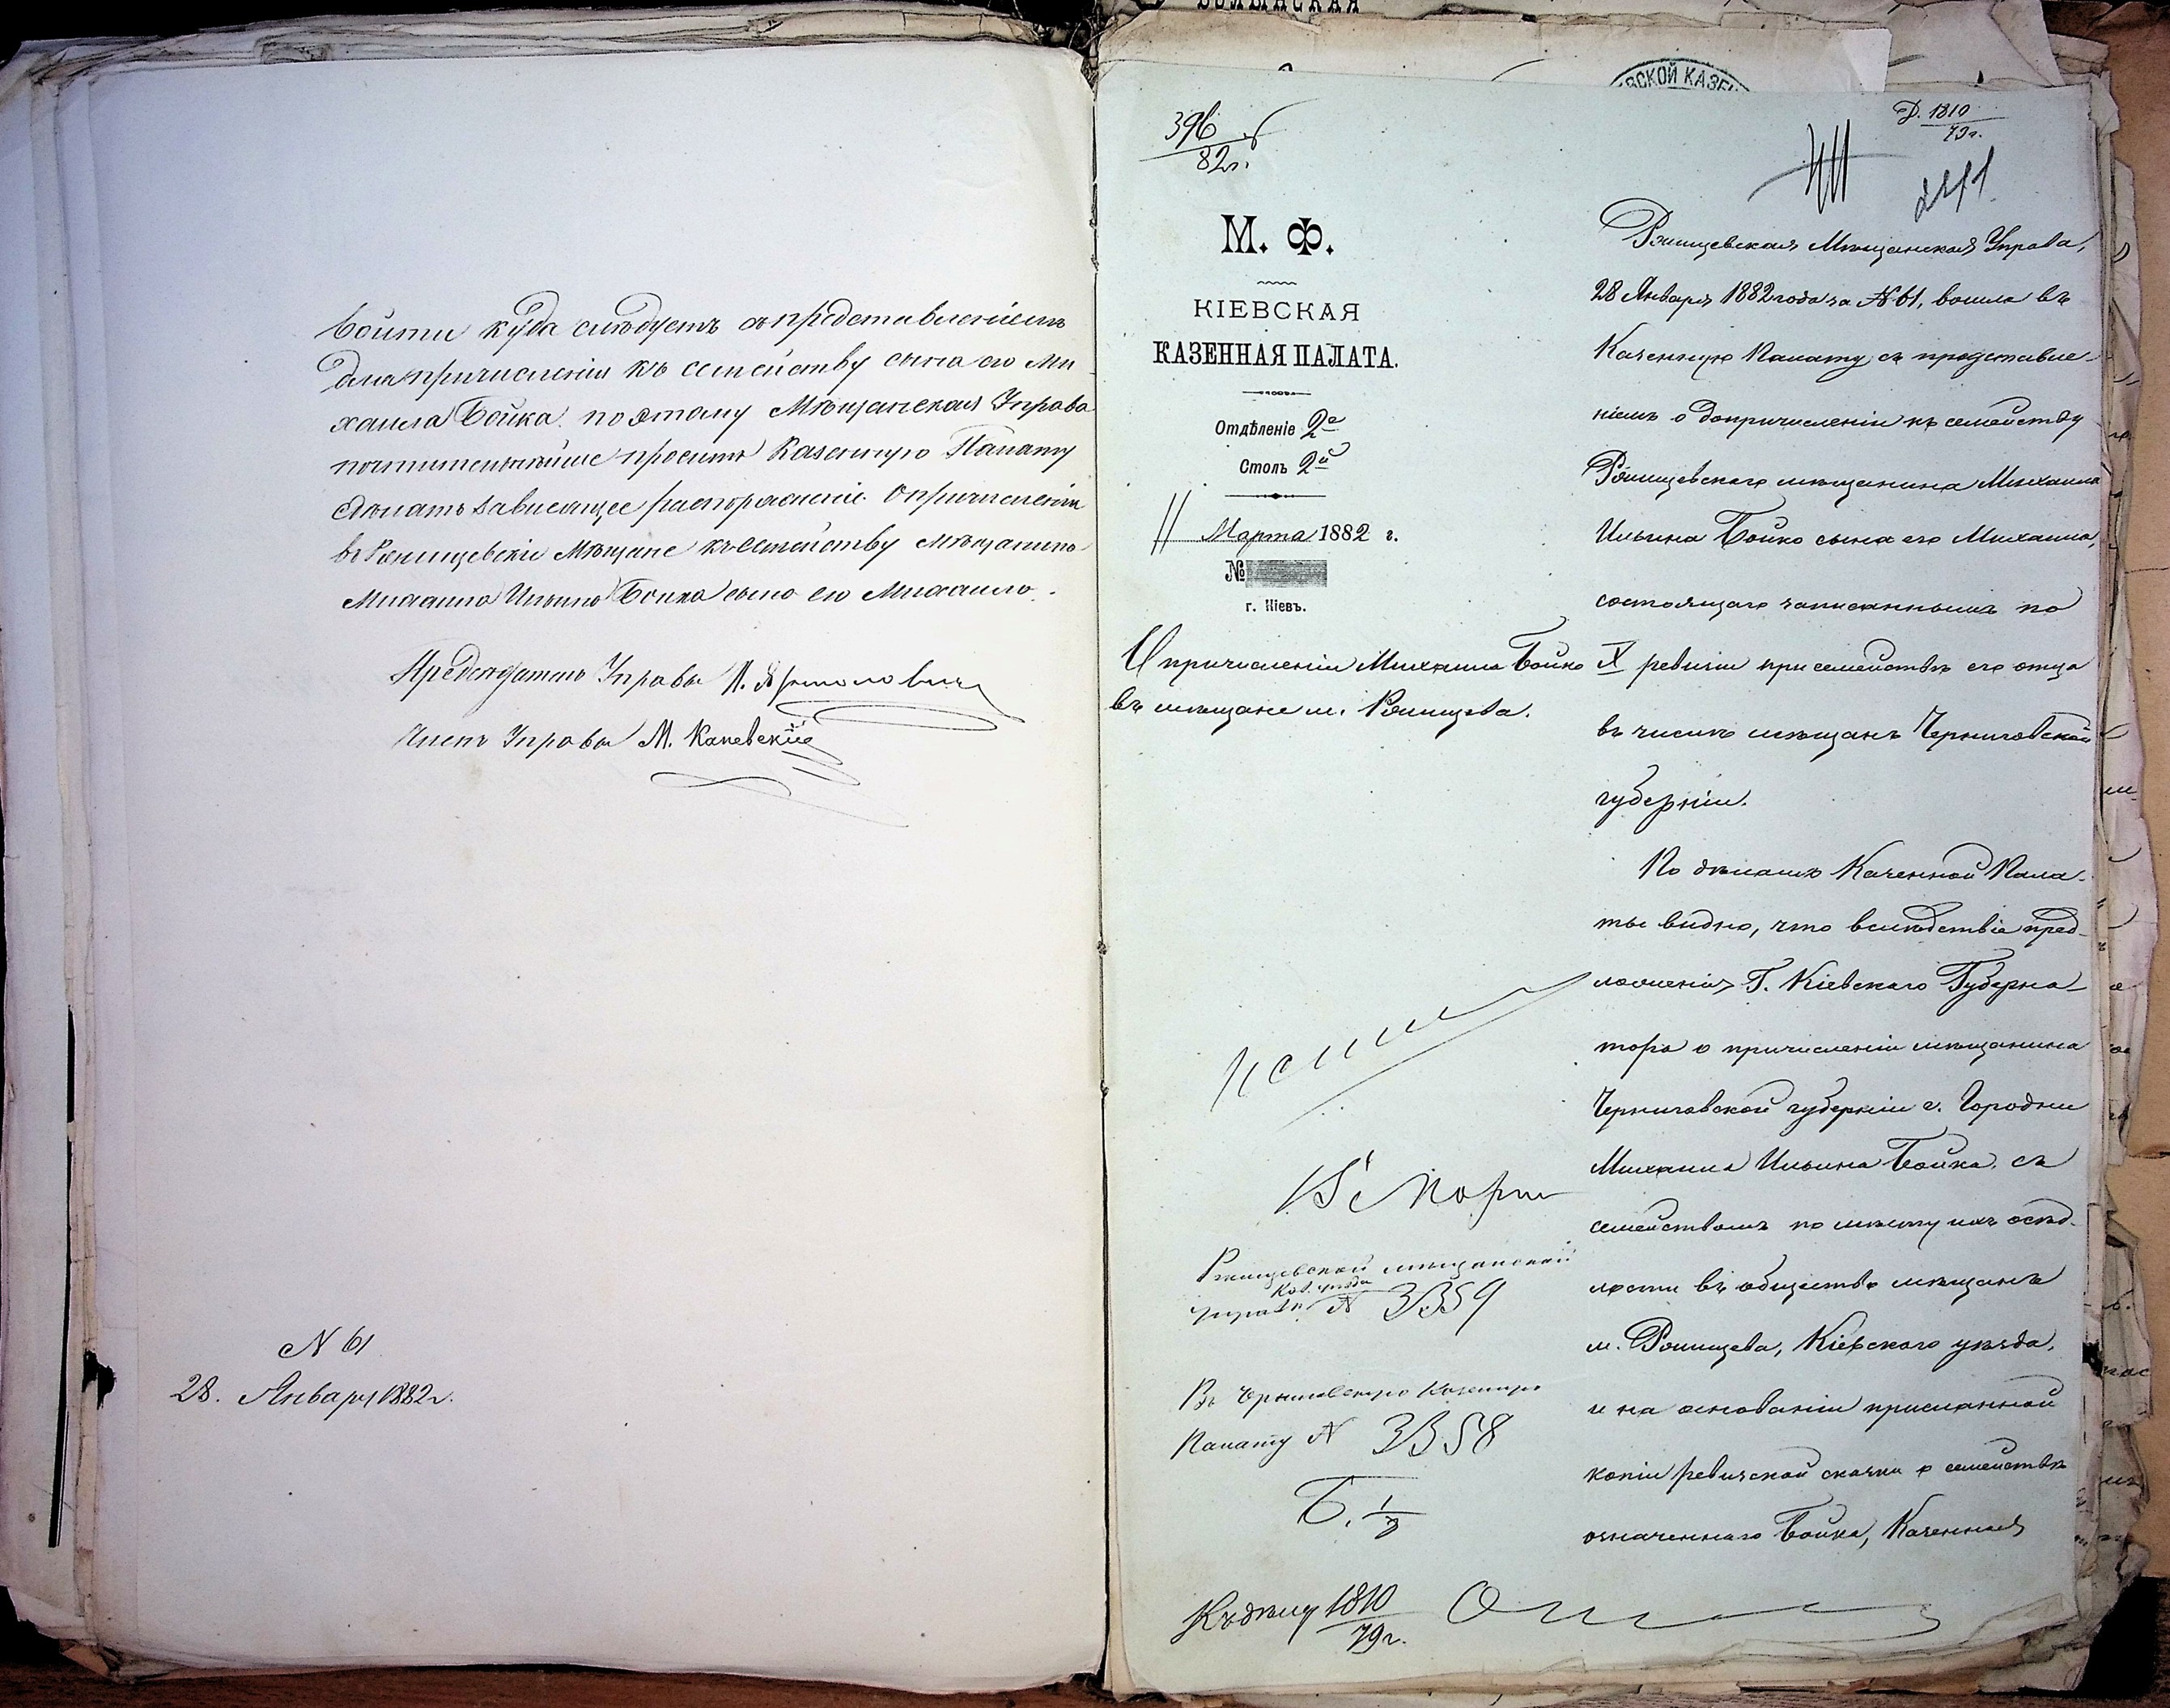 войти куда слѣдуетъ съ представленіемъ
для причисленія къ семейству сына его Ми-
хаила Бойка. поэтому Мѣщанская Управа
почтительнѣйше проситъ Казенную Палату
сдѣлать зависящее распоряженіе о причисленіи
въ Ржищевскіе Мѣщане къ семейству мѣщанина
Михаила Ильина Бойка сына его Михаила.
Предсѣдатель Управы
Членъ Управы М. Каневскій
N 61
28. Января 1882 г.
396
82 г.
М. Ф.
КІЕВСКАЯ
КАЗЕННАЯ ПАЛАТА.
Отдѣленіе 2е
Столъ 2й
11 Марта 1882 г.
№
г. Кіевъ.
О причисленіи Михаила Бойко
въ мѣщане м. Ржищева.
В. Норм
Ржищевской мѣщанской
Кіев. уѣзда
управѣ N 3359
Въ Черниговскую Казенную
Палату N 3358
Къ дѣлу 1810
79 г.
СКОЙ КАЗЕН
Д. 1810
79 г.
Ржищевская Мѣщанская Управа,
28 Января 1882 года за № 61, вошла въ
Казенную Палату съ представле-
ніемъ о допричисленіи къ семейству
Ржищевскаго мѣщанина Михаила
Ильина Бойко сына его Михаила,
состоящаго записаннымъ по
X ревизіи при семействѣ его отца
въ числѣ мѣщанъ Черниговской
губерніи.
По дѣламъ Казенной Пала-
ты видно, что вслѣдствіе пред-
ложенія Г. Кіевскаго Губерна-
тора о причисленіи мѣщанина
Черниговской губерніи г. Городни
Михаила Ильина Бойка съ
семействомъ по мѣсту ихъ осѣд-
лости въ общество мѣщанъ
м. Ржищева, Кіевскаго уѣзда,
и на основаніи присланной
копіи ревизской сказки о семействѣ
означеннаго Бойка, Казенная